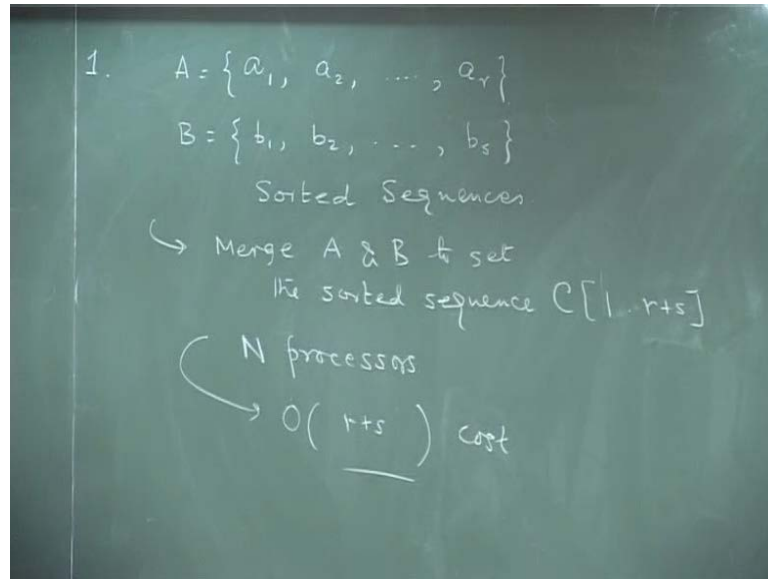 1. A = { a₁, a₂, ...., aᵣ}
B = { b₁, b₂, ...., bₛ}
Sorted Sequences
↳ Merge A & B to get
the sorted sequence C[1..r+s]
N processors
→ O( r+s ) cost